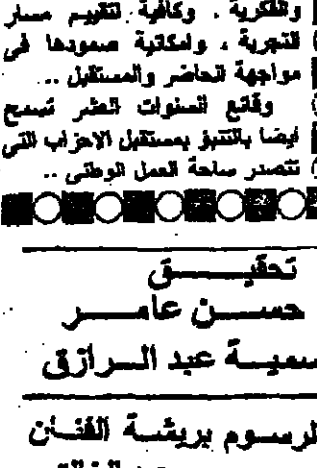 والفكرية . وكافية لتقييم مسار
التجربة ، وامكانية صمودها فى
مواجهة الحاضر والمستقبل ..
وقائع السنوات العشر تسمح
ايضا بالتنبؤ بمستقبل الاحزاب التى
تتصدر ساحة العمل الوطنى ..
تحقيـــــق
حســـن عامـــر
سميـــة عبد الـــرازق
الرسـوم بريشـة الفنـان